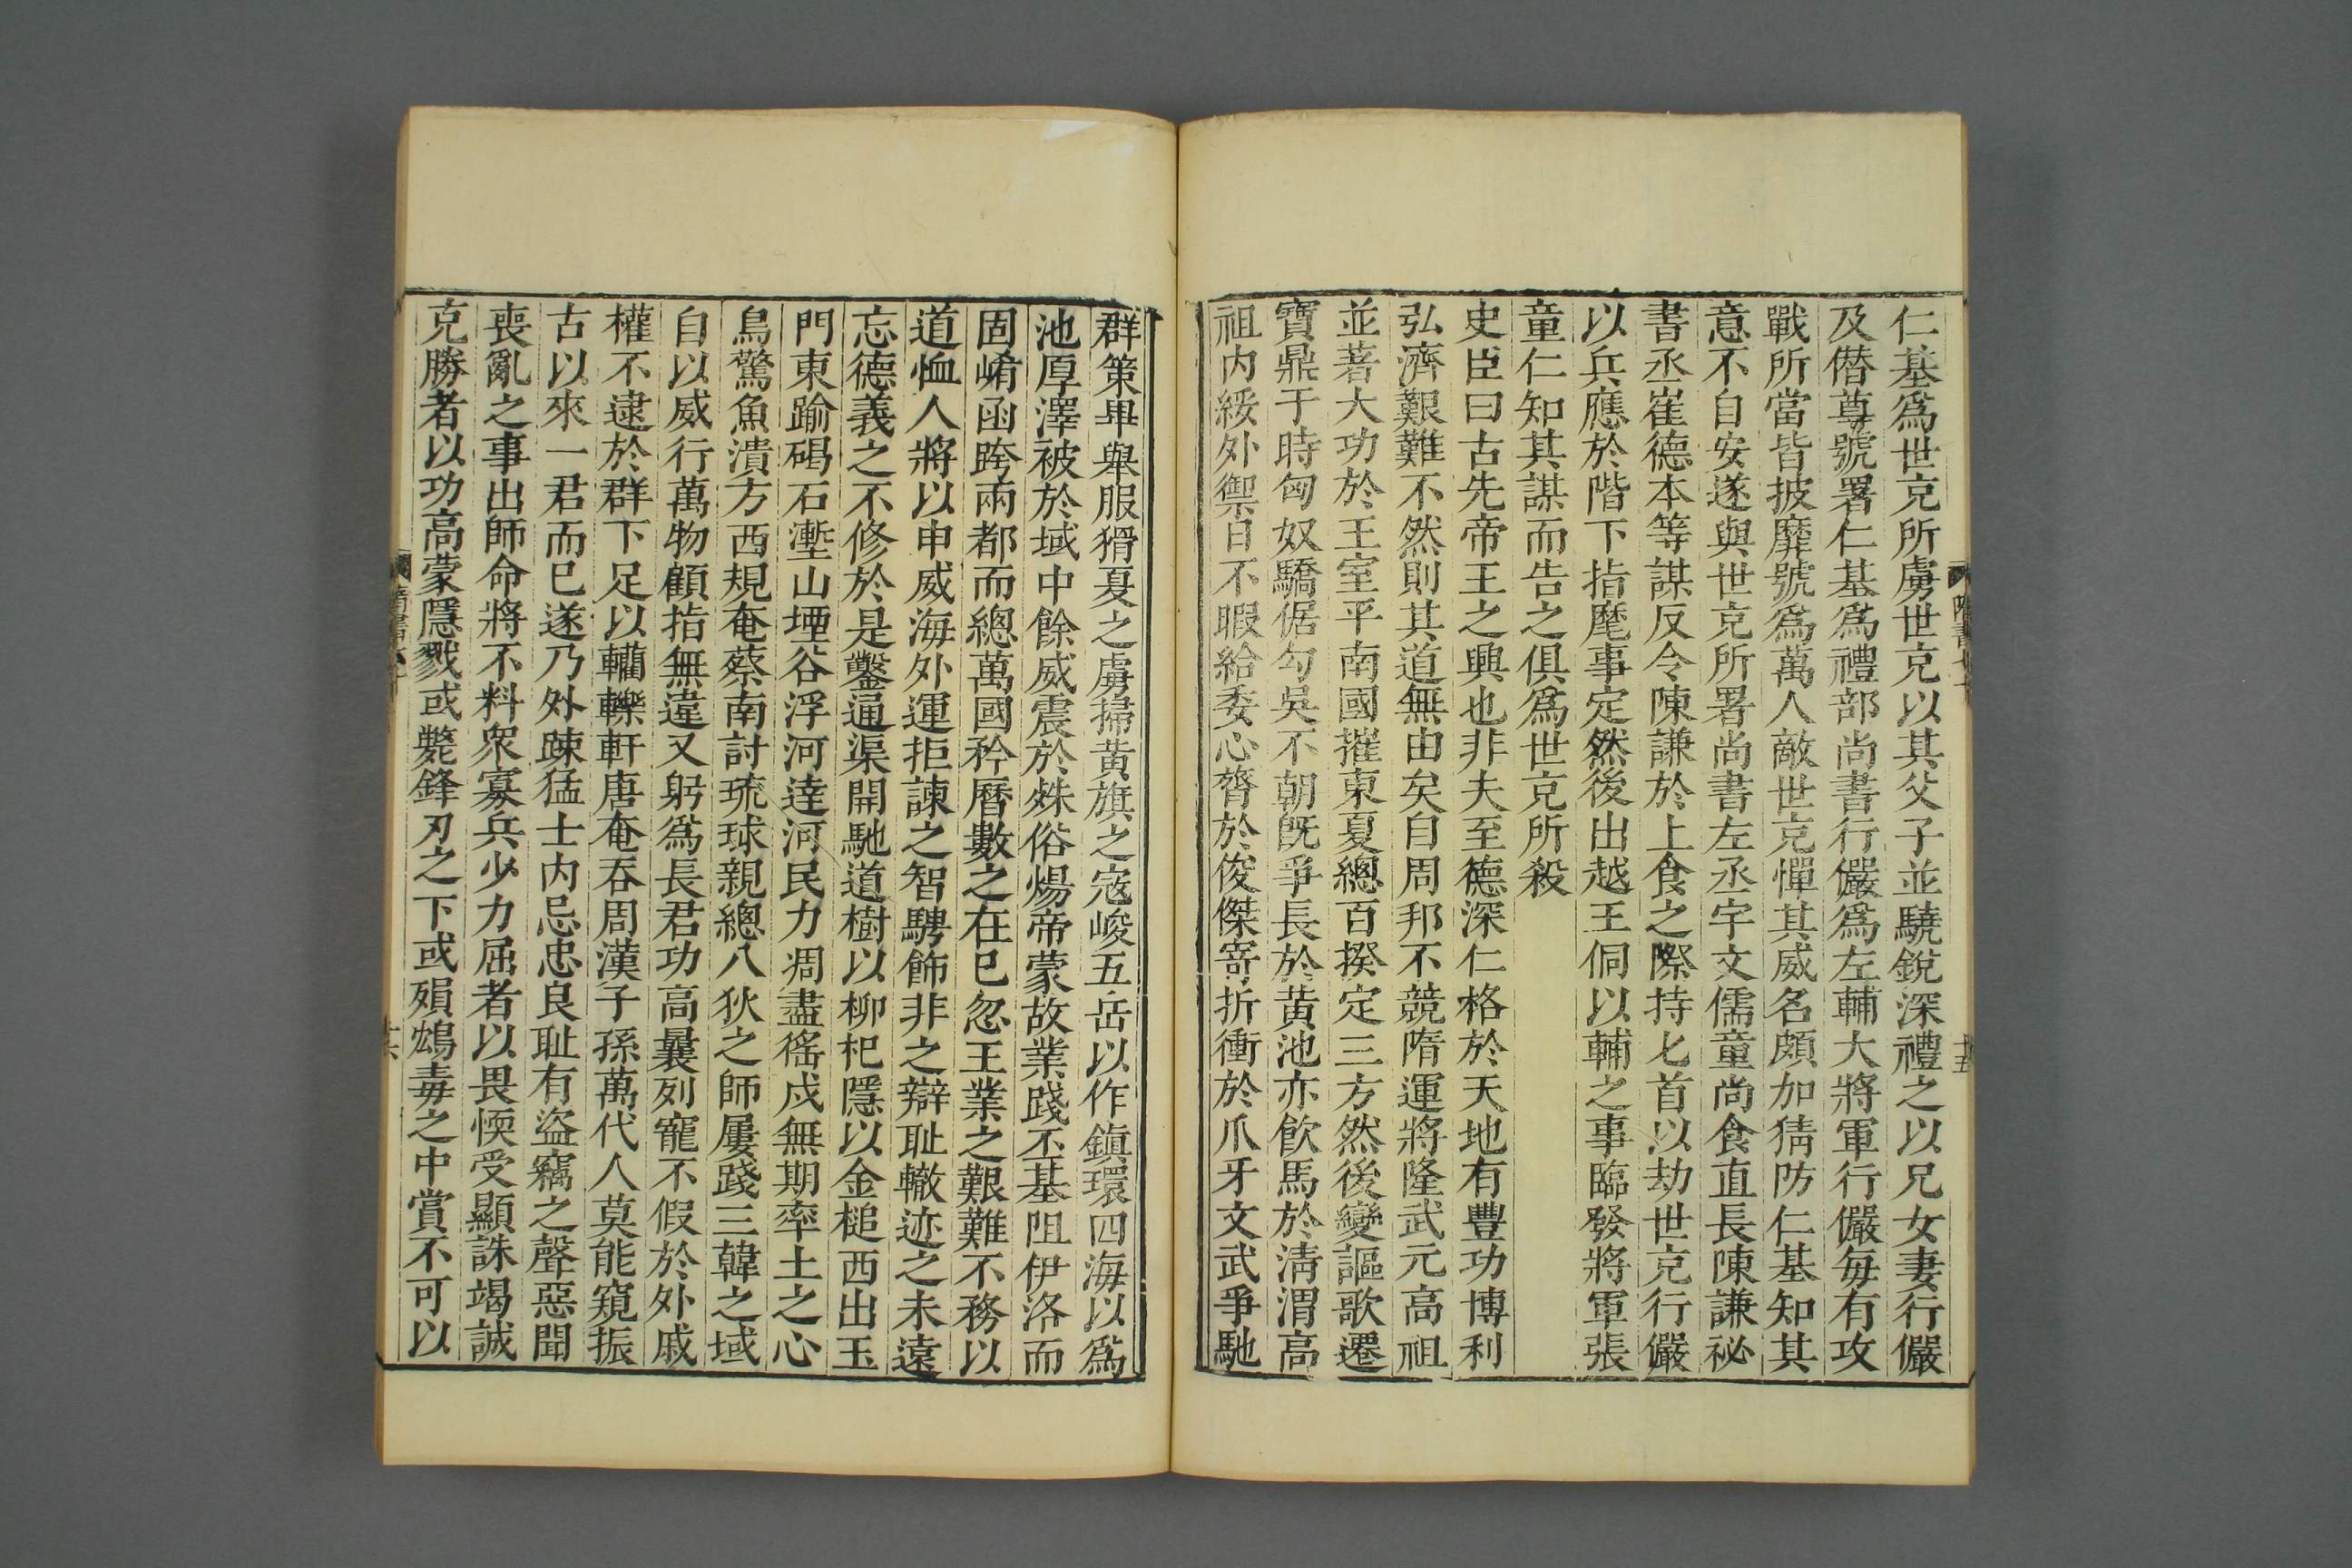 仁基爲世克所虜世克以其父子並驍銳深禮之以兄女妻行儼
及僭尊號署仁基爲禮部尚書行儼爲左輔大將軍行儼每有攻
戰所當皆披靡號爲萬人敵世克憚其威名頗加猜防仁基知其
意不自安遂與世克所署尚書左丞宇文儒童尚食直長陳謙祕
書丞崔德本等謀反令陳謙於上食之際持匕首以劫世克行儼
以兵應於階下指麾事定然後出越王侗以輔之事臨發將軍張
童仁知其謀而告之俱爲世克所殺
史臣曰古先帝王之興也非夫至德深仁格於天地有豐功博利
弘濟艱難不然則其道無由矣自周邦不競隋運將隆武元高祖
並著大功於王室平南國摧東夏總百揆定三方然後變謳歌遷
寶鼎于時匈奴驕倨勾吳不朝旣爭長於黃池亦飲馬於清渭高
祖內綏外禦日不暇給委心膂於俊傑寄折衝於爪牙文武爭馳
群策畢舉服猾夏之虜掃黃旗之寇峻五岳以作鎮環四海以爲
池厚澤被於域中餘威震於殊俗煬帝蒙故業踐丕基阻伊洛而
固崤函跨兩都而總萬國矜曆數之在已忽王業之艱難不務以
道恤人將以申威海外運拒諫之智騁飾非之辯耻轍迹之未遠
忘德義之不修於是鑿通渠開馳道樹以柳杞隱以金槌西出玉
門東踰碣石塹山堙谷浮河達河民力凋盡徭戍無期率土之心
鳥驚魚潰方西規奄蔡南討琉球親總八狄之師屢踐三韓之域
自以威行萬物顧指無違又躬爲長君功高曩列寵不假於外戚
權不逮於群下足以轥轢軒唐奄吞周漢子孫萬代人莫能窺振
古以來一君而已遂乃外疎猛士內忌忠良耻有盜竊之聲惡聞
喪亂之事出師命將不料衆寡兵少力屈者以畏愞受顯誅竭誠
克勝者以功高蒙隱戮或斃鋒刃之下或殞鴆毒之中賞不可以
十五
十六